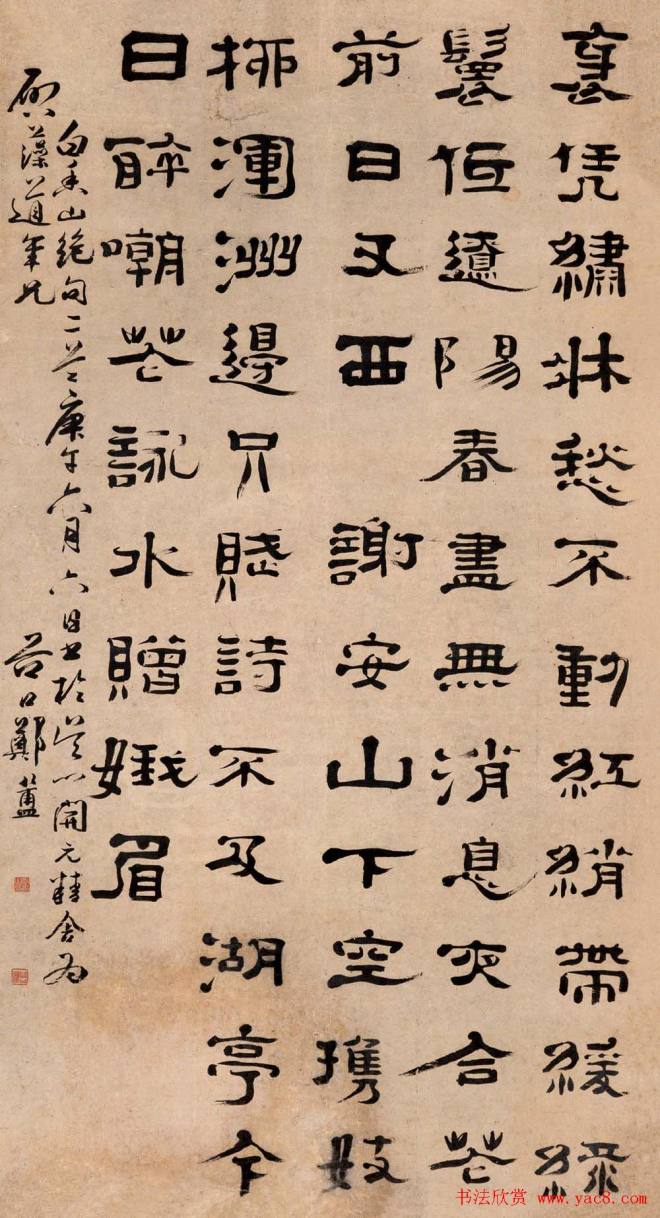 衺凭繡牀愁不動紅綃帶緩綠
鬟低遼陽春盡無消息夜合花
前日又西 謝安山下空攜妓
柳渾洲邊只賦詩不及湖亭今
日醉嘲花詠水贈娥眉
白香山絕句二首庚午六月六日書於吳門開元精舍為
藻道年兄 谷口鄭簠
书法欣赏 www.yac8.com